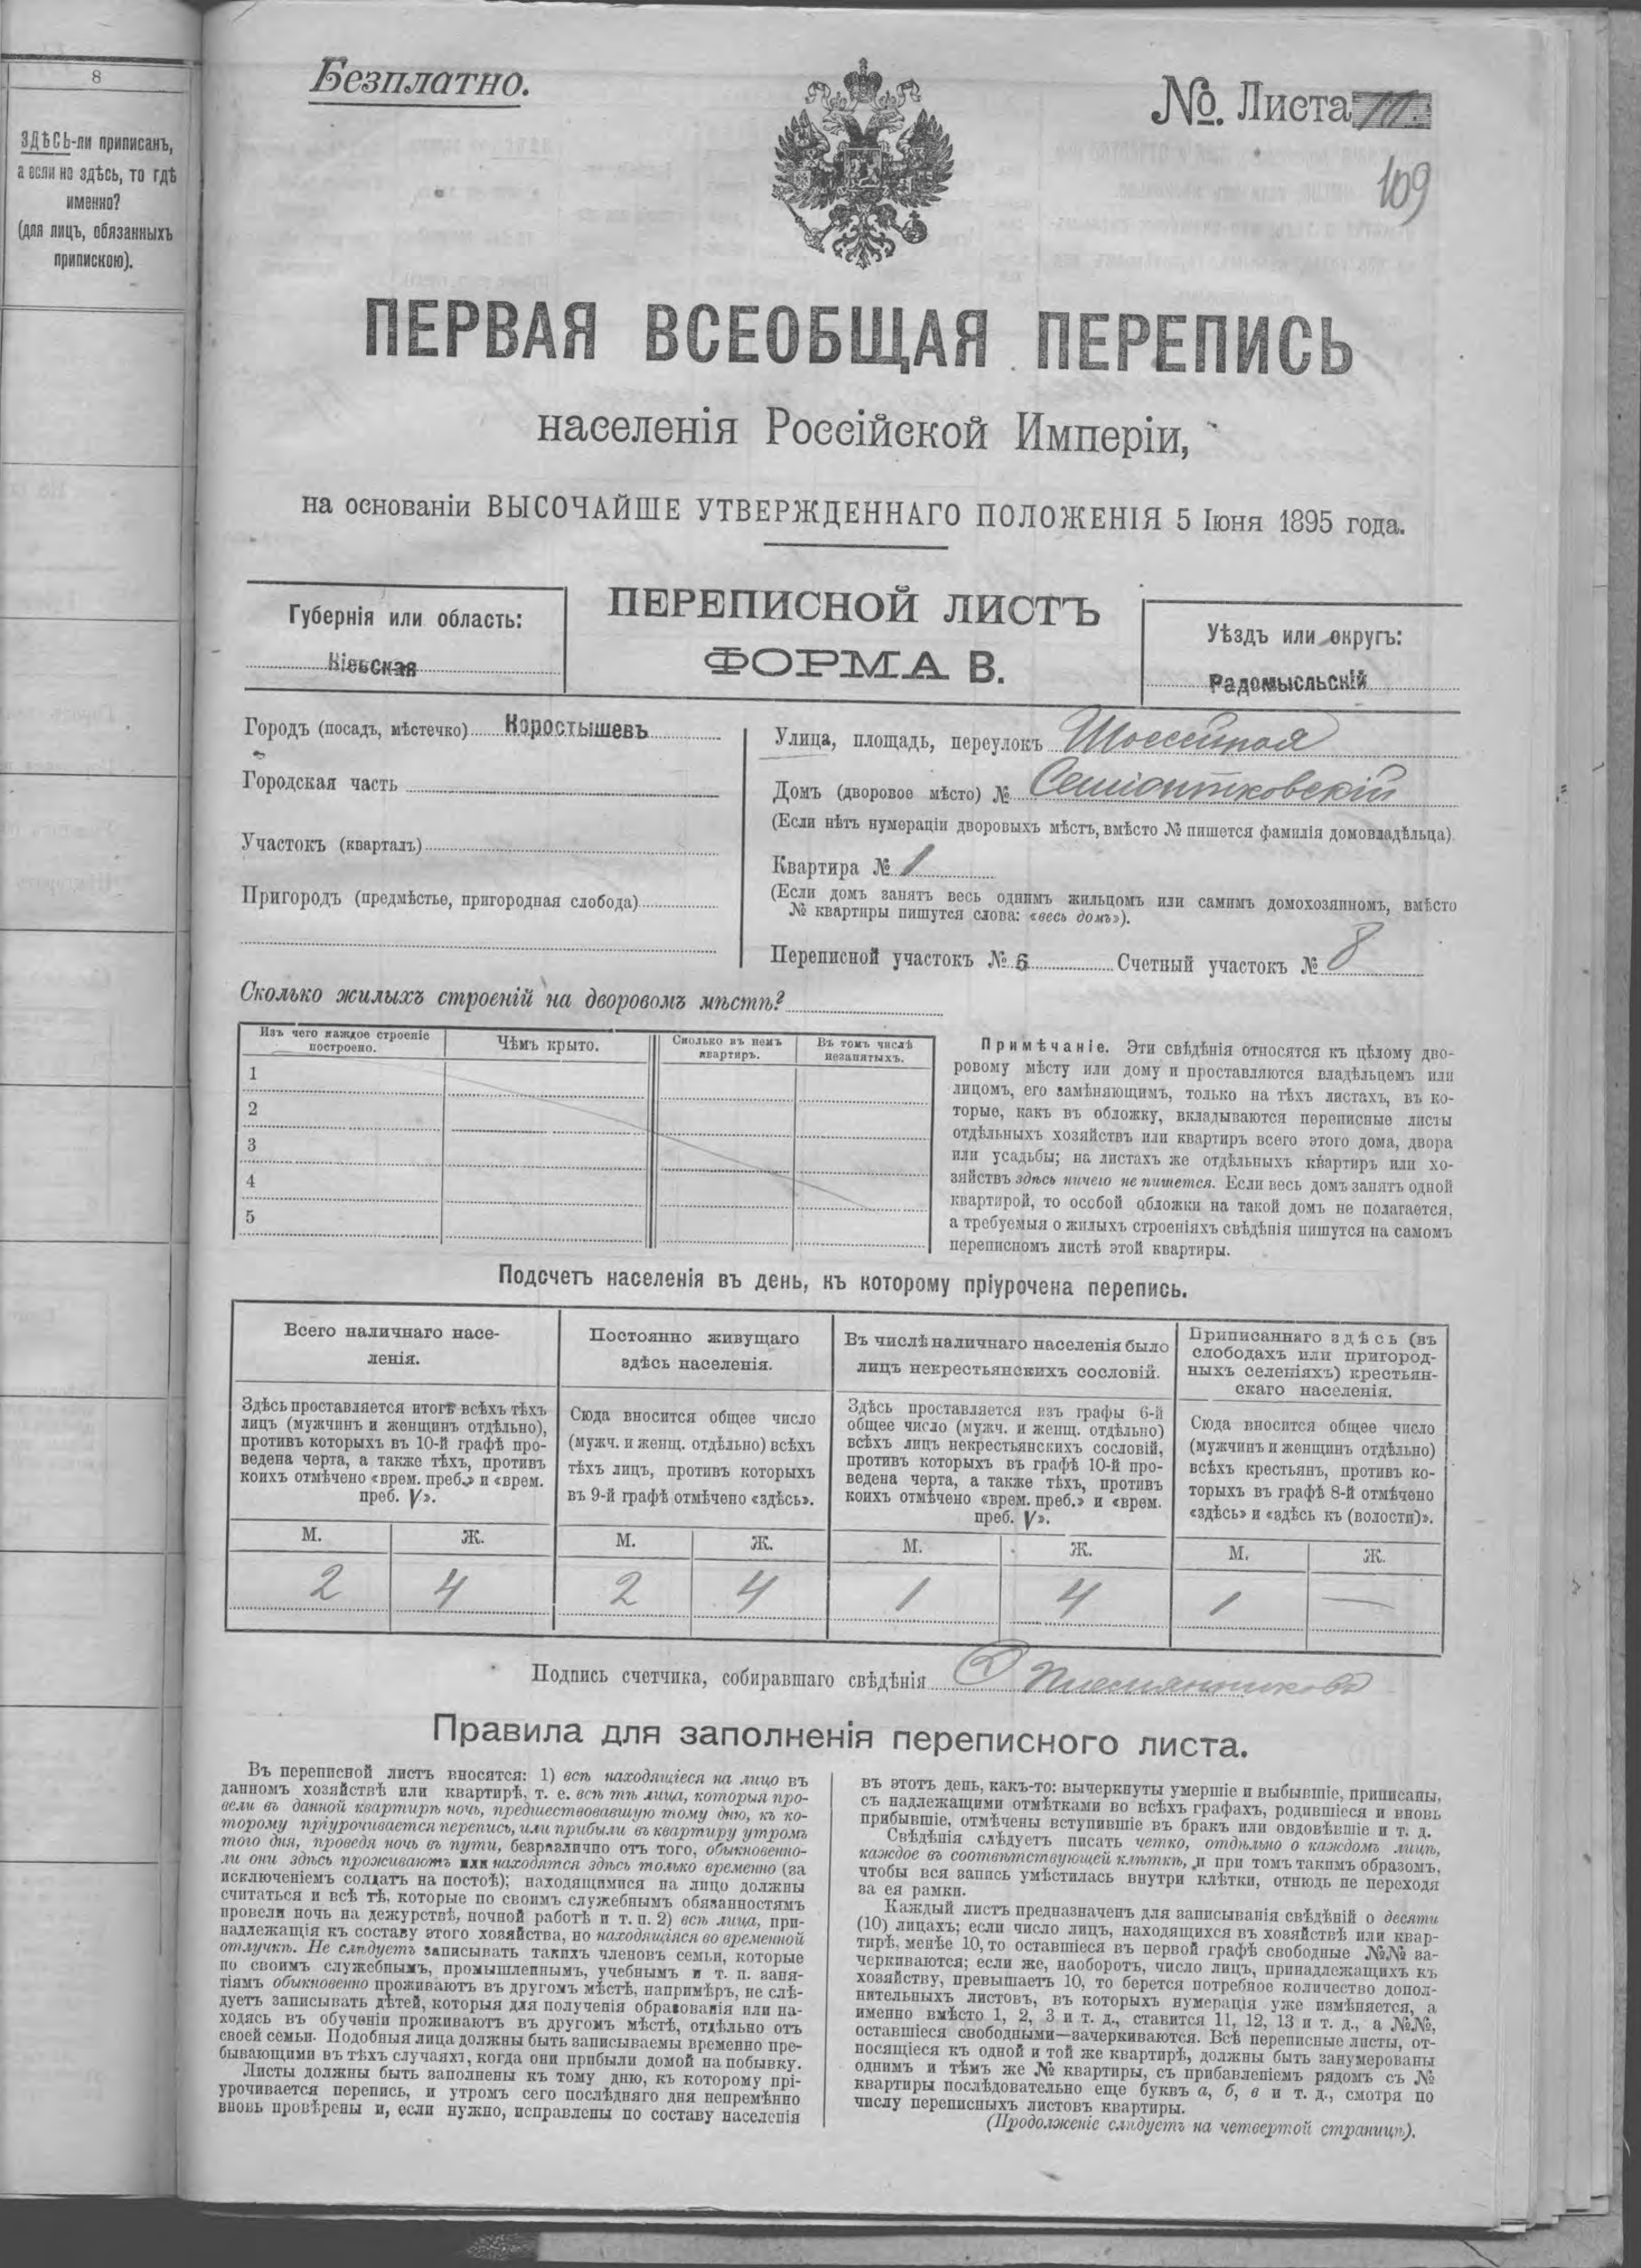 8
ЗДѢСЬ-ли приписанъ,
а если не здѣсь, то гдѣ
именно?
(для лицъ, обязанныхъ
припискою).
Безплатно.
№. Листа
109
ПЕРВАЯ ВСЕОБЩАЯ ПЕРЕПИСЬ
населенія Россійской Имперіи,
на основаніи ВЫСОЧАЙШЕ УТВЕРЖДЕННАГО ПОЛОЖЕНІЯ 5 Іюня 1895 года.
Губернія или область:
Кіевская
ПЕРЕПИСНОЙ ЛИСТЪ
ФОРМА В.
Уѣздъ или округъ:
Радомысльскій
Городъ (посадъ, мѣстечко) Коростышевъ
Городская часть
Участокъ (кварталъ)
Пригородъ (предмѣстье, пригородная слобода)
Улица, площадь, переулокъ Шоссейная
Домъ (дворовое мѣсто) № Семіонтковскій
(Если нѣтъ нумераціи дворовыхъ мѣстъ, вмѣсто № пишется фамилія домовладѣльца).
Квартира № 1
(Если домъ занятъ весь однимъ жильцомъ или самимъ домохозяиномъ, вмѣсто
№ квартиры пишутся слова: «весь домъ»).
Переписной участокъ № 5 Счетный участокъ № 8
Сколько жилыхъ строеній на дворовомъ мѣстѣ?
Изъ чего каждое строеніе
построено.
Чѣмъ крыто.
Сколько въ немъ
квартиръ.
Въ томъ числѣ
незанятыхъ.
1
2
3
4
5
Примѣчаніе. Эти свѣдѣнія относятся къ цѣлому дво-
ровому мѣсту или дому и проставляются владѣльцемъ или
лицомъ, его замѣняющимъ, только на тѣхъ листахъ, въ ко-
торые, какъ въ обложку, вкладываются переписные листы
отдѣльныхъ хозяйствъ или квартиръ всего этого дома, двора
или усадьбы; на листахъ же отдѣльныхъ квартиръ или хо-
зяйствъ здѣсь ничего не пишется. Если весь домъ занятъ одной
квартирой, то особой обложки на такой домъ не полагается,
а требуемыя о жилыхъ строеніяхъ свѣдѣнія пишутся на самомъ
переписномъ листѣ этой квартиры.
Подсчетъ населенія въ день, къ которому пріурочена перепись.
Всего наличнаго насе-
ленія.
Здѣсь проставляется итогъ всѣхъ тѣхъ
лицъ (мужчинъ и женщинъ отдѣльно),
противъ которыхъ въ 10-й графѣ про-
ведена черта, а также тѣхъ, противъ
коихъ отмѣчено «врем. преб.» и «врем.
преб. V».
Постоянно живущаго
здѣсь населенія.
Сюда вносится общее число
(мужч. и женщ. отдѣльно) всѣхъ
тѣхъ лицъ, противъ которыхъ
въ 9-й графѣ отмѣчено «здѣсь».
Въ числѣ наличнаго населенія было
лицъ некрестьянскихъ сословій.
Здѣсь проставляется изъ графы 6-й
общее число (мужч. и женщ. отдѣльно)
всѣхъ лицъ некрестьянскихъ сословій,
противъ которыхъ въ графѣ 10-й про-
ведена черта, а также тѣхъ, противъ
коихъ отмѣчено «врем. преб.» и «врем.
преб. V».
Приписаннаго здѣсь (въ
слободахъ или пригород-
ныхъ селеніяхъ) крестьян-
скаго населенія.
Сюда вносится общее число
(мужчинъ и женщинъ отдѣльно)
всѣхъ крестьянъ, противъ ко-
торыхъ въ графѣ 8-й отмѣчено
«здѣсь» и «здѣсь къ (волости)».
М. Ж. М. Ж. М. Ж. М. Ж.
2 4 2 4 1 4 1 —
Подпись счетчика, собиравшаго свѣдѣнія
Правила для заполненія переписного листа.
Въ переписной листъ вносятся: 1) всѣ находящіеся на лицо въ
данномъ хозяйствѣ или квартирѣ, т. е. всѣ тѣ лица, которыя про-
вели въ данной квартирѣ ночь, предшествовавшую тому дню, къ ко-
торому пріурочивается перепись, или прибыли въ квартиру утромъ
того дня, проведя ночь въ пути, безразлично отъ того, обыкновенно-
ли они здѣсь проживаютъ или находятся здѣсь только временно (за
исключеніемъ солдатъ на постоѣ); находящимися на лицо должны
считаться и всѣ тѣ, которые по своимъ служебнымъ обязанностямъ
провели ночь на дежурствѣ, ночной работѣ и т. п. 2) всѣ лица, при-
надлежащія къ составу этого хозяйства, но находящіяся во временной
отлучкѣ. Не слѣдуетъ записывать такихъ членовъ семьи, которые
по своимъ служебнымъ, промышленнымъ, учебнымъ и т. п. заня-
тіямъ обыкновенно проживаютъ въ другомъ мѣстѣ, напримѣръ, не слѣ-
дуетъ записывать дѣтей, которыя для полученія образованія или на-
ходясь въ обученіи проживаютъ въ другомъ мѣстѣ, отдѣльно отъ
своей семьи. Подобныя лица должны быть записываемы временно пре-
бывающими въ тѣхъ случаяхъ, когда они прибыли домой на побывку.
Листы должны быть заполнены къ тому дню, къ которому прі-
урочивается перепись, и утромъ сего послѣдняго дня непремѣнно
вновь провѣрены и, если нужно, исправлены по составу населенія
въ этотъ день, какъ-то: вычеркнуты умершіе и выбывшіе, приписаны,
съ надлежащими отмѣтками во всѣхъ графахъ, родившіеся и вновь
прибывшіе, отмѣчены вступившіе въ бракъ или овдовѣвшіе и т. д.
Свѣдѣнія слѣдуетъ писать четко, отдѣльно о каждомъ лицѣ,
каждое въ соотвѣтствующей клѣткѣ, и при томъ такимъ образомъ,
чтобы вся запись умѣстилась внутри клѣтки, отнюдь не переходя
за ея рамки.
Каждый листъ предназначенъ для записыванія свѣдѣній о десяти
(10) лицахъ; если число лицъ, находящихся въ хозяйствѣ или квар-
тирѣ, менѣе 10, то оставшіеся въ первой графѣ свободные №№ за-
черкиваются; если же, наоборотъ, число лицъ, принадлежащихъ къ
хозяйству, превышаетъ 10, то берется потребное количество допол-
нительныхъ листовъ, въ которыхъ нумерація уже измѣняется, а
именно вмѣсто 1, 2, 3 и т. д., ставится 11, 12, 13 и т. д., а №№,
оставшіеся свободными—зачеркиваются. Всѣ переписные листы, от-
носящіеся къ одной и той же квартирѣ, должны быть занумерованы
однимъ и тѣмъ же № квартиры, съ прибавленіемъ рядомъ съ №
квартиры послѣдовательно еще буквъ а, б, в и т. д., смотря по
числу переписныхъ листовъ квартиры.
(Продолженіе слѣдуетъ на четвертой страницѣ).